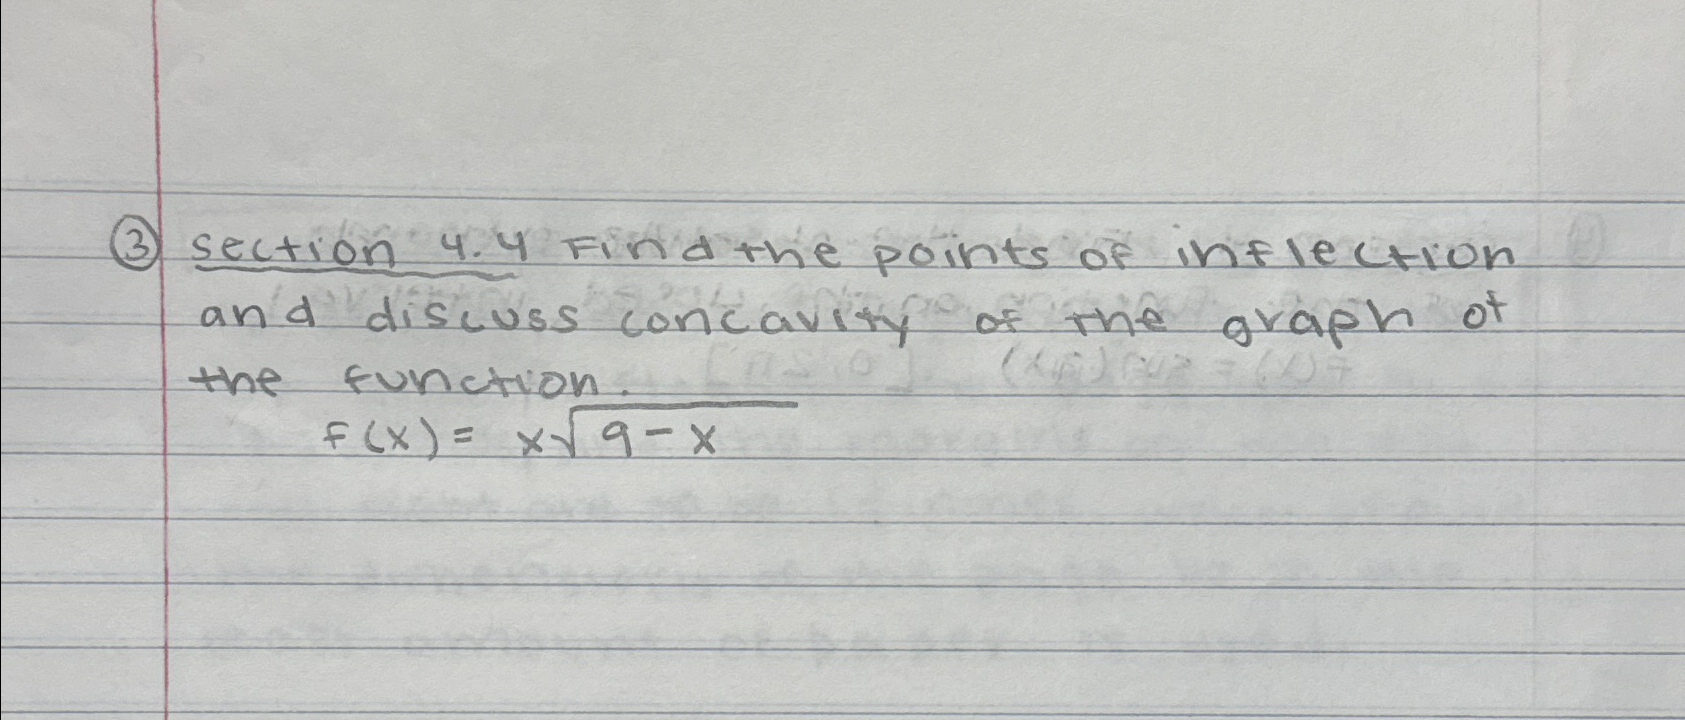 ③ section 4.4 Find the points of inflection
and discuss concavity of the graph of
the function.
f(x) = x√9-x